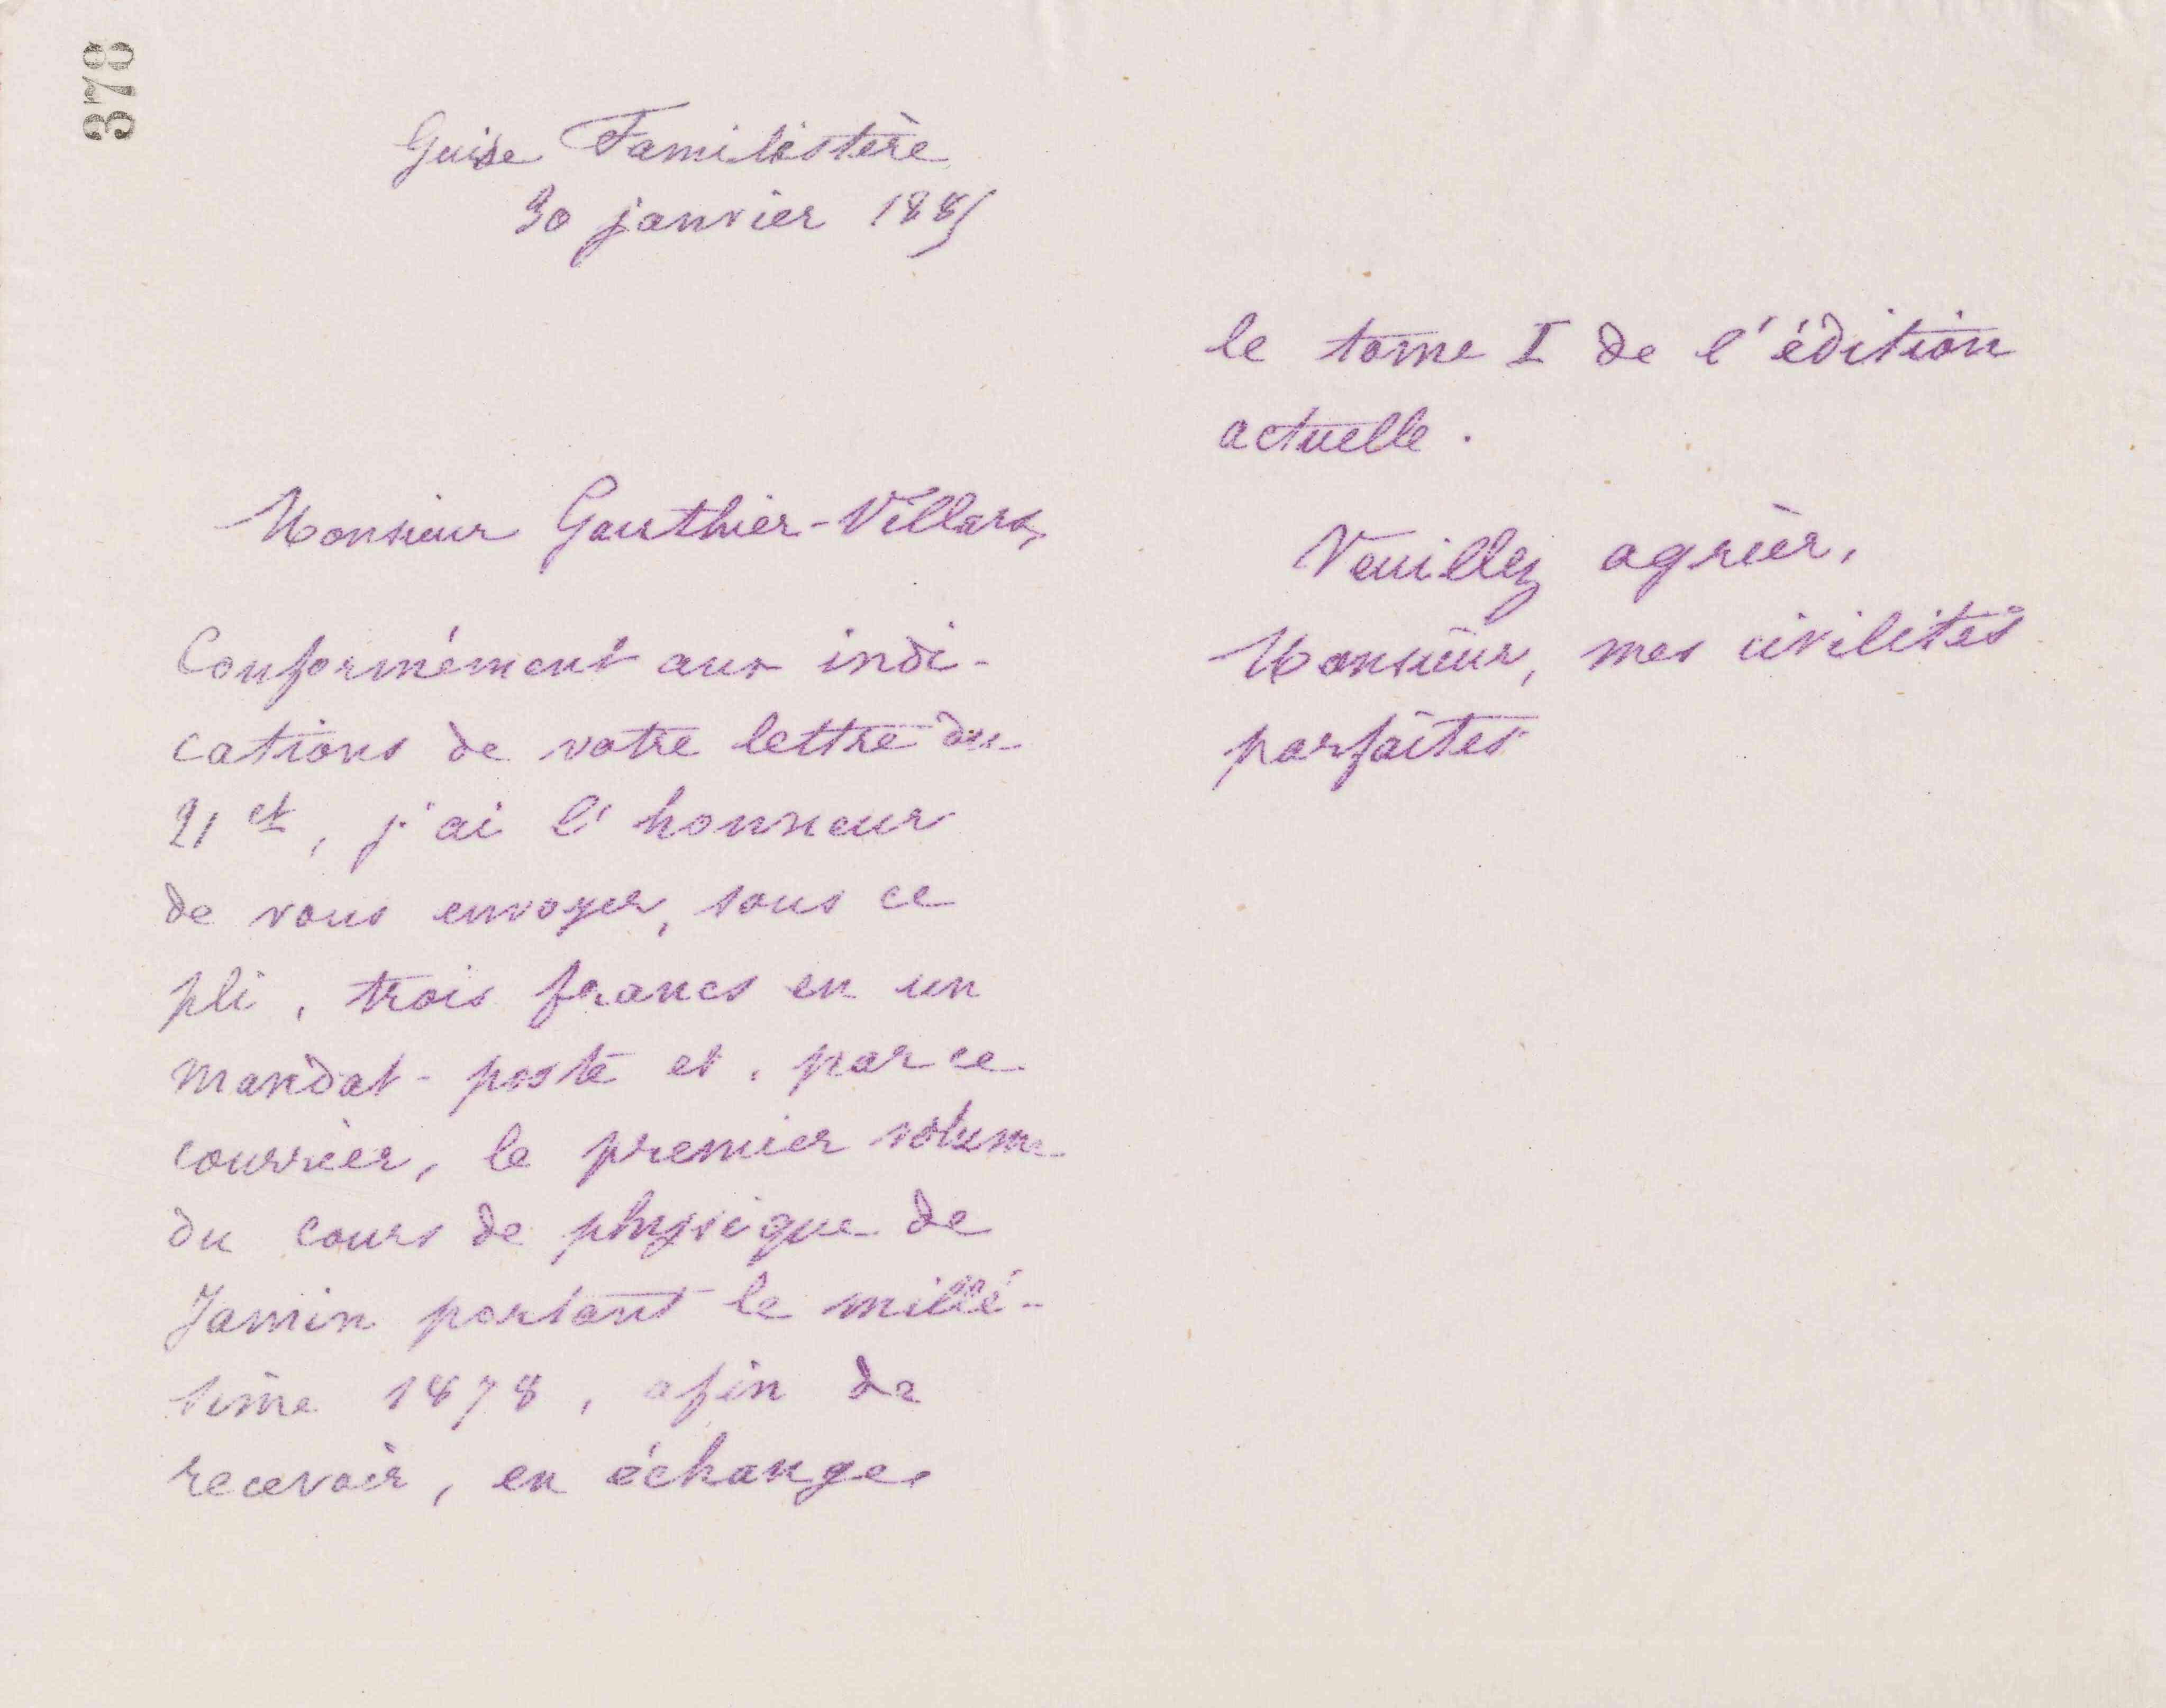 378
Guise Familistère
30 janvier 1885
Monsieur Gauthier-Villars,
Conformément aux indi-
cations de votre lettre du
21 ct, j'ai l'honneur
de vous envoyer, sous ce
pli, trois francs en un
mandat-poste et, par ce
courrier, le premier volume
du cours de physique de
Jamin portant le millé-
sime 1878, afin de
recevoir, en échange,
le tome I de l'édition
actuelle.
Veuillez agréer,
Monsieur, mes civilités
parfaites